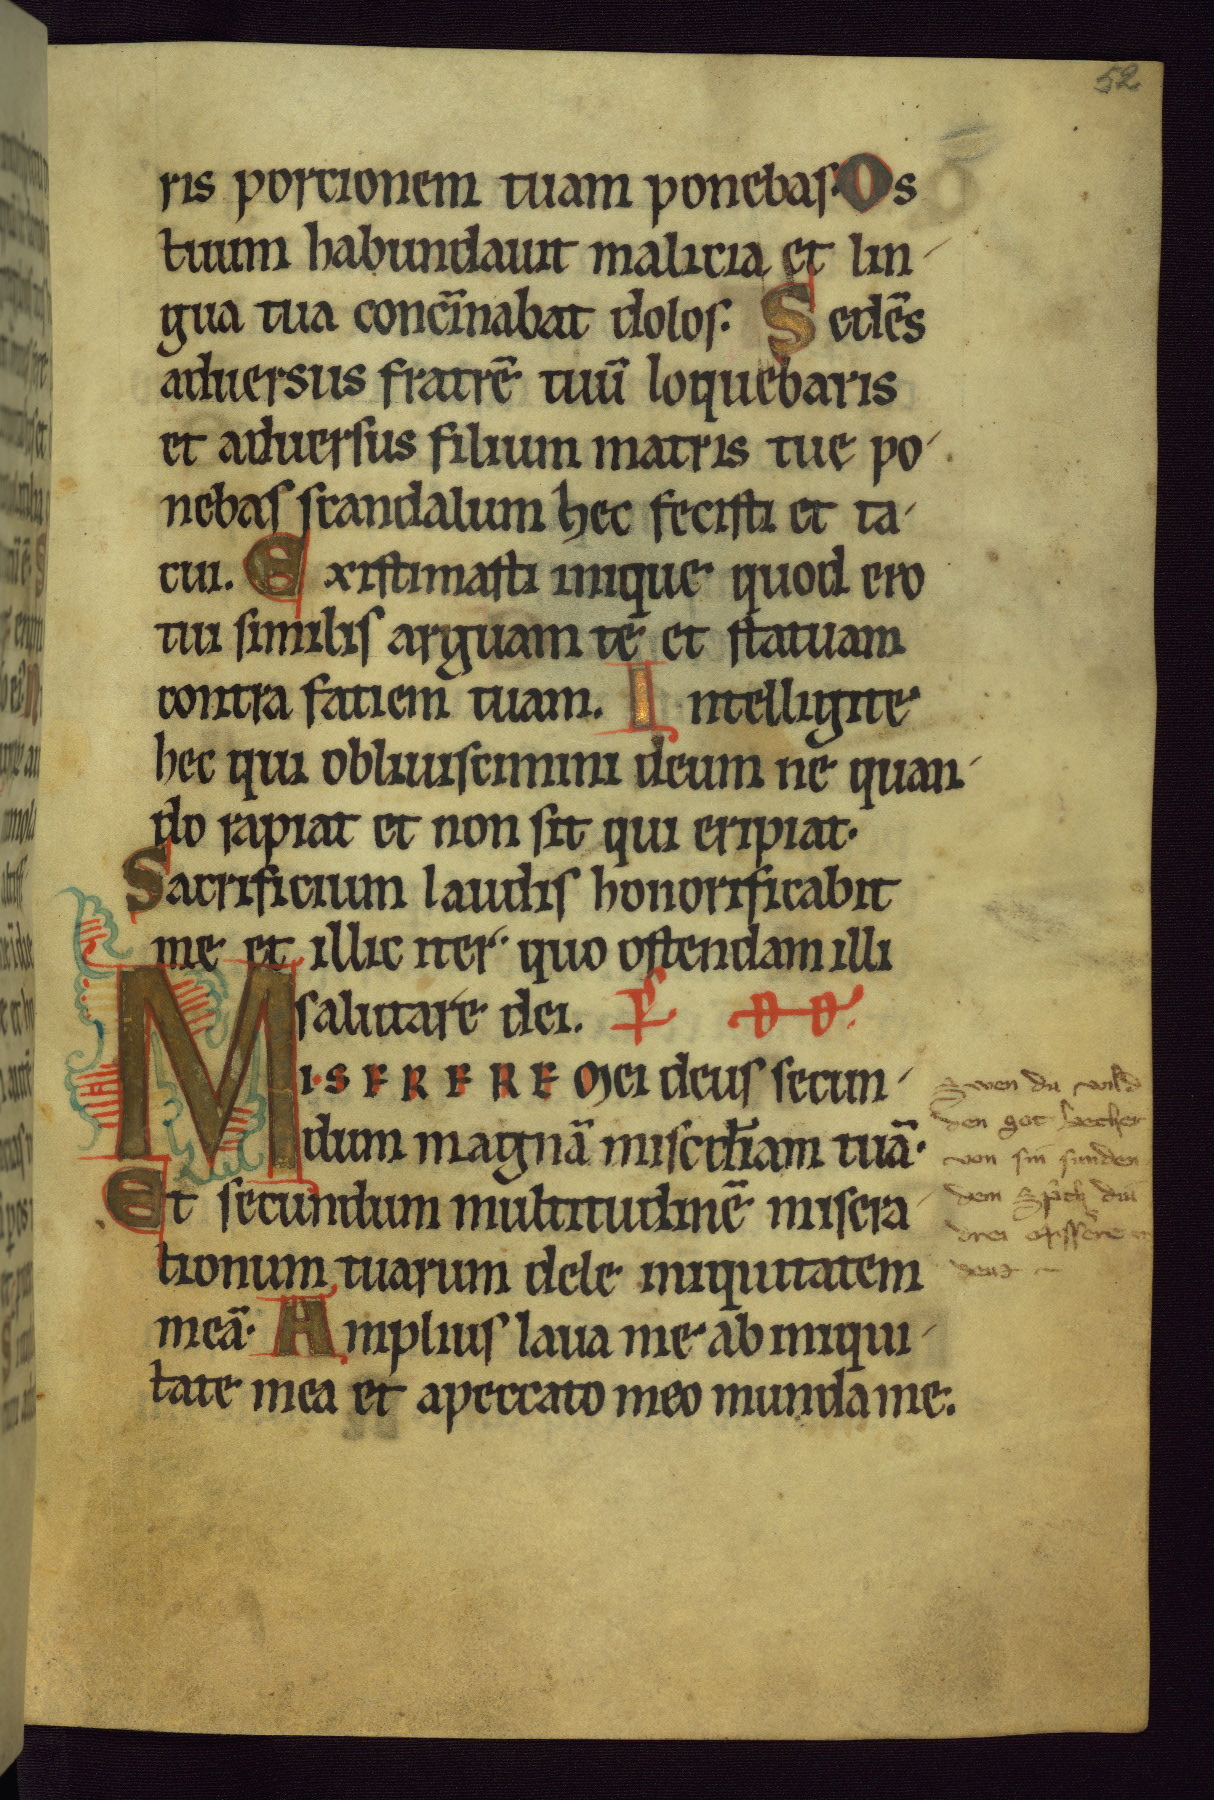 52
ris portionem tuam ponebas. Os
tuum habundauit malicia et lin
gua tua conc̄innabat dolos. Sedēs
aduersus fratrē tuū loquebaris
et aduersus filium matris tue po
nebas scandalum hec fecisti et ta
cui. Existimasti inique quod ero
tui similis arguam te et statuam
contra fatiem tuam. Intelligite
hec qui obliuiscimini deum ne quan
do rapiat et non sit qui eripiat.
Sacrificium laudis honorificabit
me et illic iter quo ostendam illi
salutare dei. Ps DD.
MISERERE Mei deus secun
dum magnā misc̄diam tuā.
Et secundum multitudinē misera
tionum tuarum dele iniquitatem
meā. Amplius laua me ab iniqui
tate mea et apeccato meo munda me.
Swen du wild
den got becher
von sin sunden
dem sprich
drei